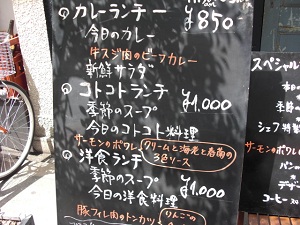 カレーランチー
¥850-
今日のカレー
牛スジ肉のビーフカレー
新鮮サラダ
コトコトランチ
¥1,000
季節のスープ
今日のコトコト料理
サーモンのポワレ クリームと海老と春菊の3色ソース
洋食ランチ
季節のスープ
¥1,000
今日の洋食料理
豚フィレ肉のトンカツ りんごの
スペシャル
本日の
季節
シェフ特製
サーモンのポワレ
パン
デザ
コーヒー